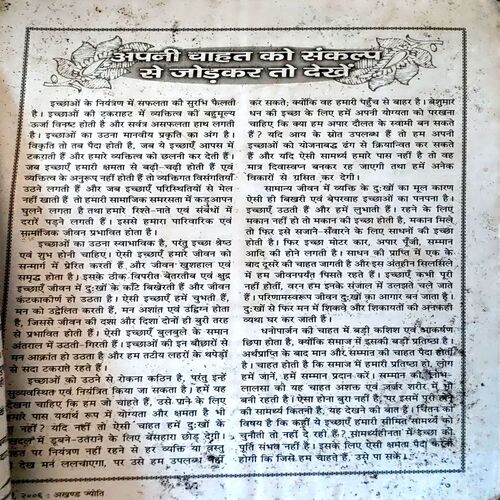 अपनी चाहत को संकल्प
से जोड़कर तो देखें
इच्छाओं के नियंत्रण में सफलता की सुरभि फैलती
है। इच्छाओं की टकराहट में व्यक्तित्व की बहुमूल्य
ऊर्जा विनष्ट होती है और सर्वत्र असफलता हाथ लगती
है। इच्छाओं का उठना मानवीय प्रकृति का अंग है।
विकृति तो तब पैदा होती है, जब ये इच्छाएँ आपस में
टकराती हैं और हमारे व्यक्तित्व को छलनी कर देती हैं।
जब इच्छाएँ हमारी क्षमता से बढ़ी-चढ़ी होती हैं एवं
व्यक्तित्व के अनुरूप नहीं होती हैं तो व्यक्तिगत विसंगतियाँ
उठने लगती हैं और जब इच्छाएँ परिस्थितियों से मेल
नहीं खातीं हैं तो हमारी सामाजिक समरसता में कड़ुआपन
घुलने लगता है तथा हमारे रिश्ते-नाते एवं संबंधों में
दरारें पड़ने लगती हैं। इससे हमारा पारिवारिक एवं
सामाजिक जीवन प्रभावित होता है।
इच्छाओं का उठना स्वाभाविक है, परंतु इच्छा श्रेष्ठ
एवं शुभ होनी चाहिए। ऐसी इच्छाएँ हमारे जीवन को
सन्मार्ग में प्रेरित करती हैं और जीवन खुशहाल एवं
समृद्ध होता है। इसके ठीक विपरीत बेतरतीब एवं क्षुद्र
इच्छाएँ जीवन में दुःखों के काँटे बिखेरती हैं और जीवन
कंटकाकीर्ण हो उठता है। ऐसी इच्छाएँ हमें चुभती हैं,
मन को उद्वेलित करती हैं, मन अशांत एवं उद्विग्न होता
है, जिससे जीवन की दशा और दिशा दोनों ही बुरी तरह
से प्रभावित होती हैं। ऐसी इच्छाएँ बुलबुले के समान
अंतराल में उठती-गिरती हैं। इच्छाओं की इन बौछारों से
मन आक्रांत हो उठता है और हम तटीय लहरों के थपेड़ों
से सदा टकराते रहते हैं।
इच्छाओं को उठने से रोकना कठिन है, परंतु इन्हें
सुव्यवस्थित एवं नियंत्रित किया जा सकता है। हमें यह
देखना चाहिए कि हम जो चाहते हैं, उसे पाने के लिए
हमारे पास यथार्थ रूप में योग्यता और क्षमता है भी
या नहीं? यदि नहीं तो ऐसी चाहत हमें दुःखों के
दलदल में डूबने-उतराने के लिए बेसहारा छोड़ देगी।
चाहत पर नियंत्रण नहीं रहने से हर व्यक्ति या वस्तु
को देख मन ललचाएगा, पर उसे हम उपलब्ध नहीं
कर सकते; क्योंकि वह हमारी पहुँच से बाहर है। बेशुमार
धन की इच्छा के लिए हमें अपनी योग्यता को परखना
चाहिए कि क्या हम अपार दौलत के स्वामी बन सकते
हैं? यदि आय के स्रोत उपलब्ध हैं तो हम अपनी
इच्छाओं को योजनाबद्ध ढंग से क्रियान्वित कर सकते
हैं और यदि ऐसी सामर्थ्य हमारे पास नहीं है तो वह
मात्र दिवास्वप्न बनकर रह जाएगी तथा हमें अनेक
विकारों से ग्रसित कर देगी।
सामान्य जीवन में व्यक्ति के दुःखों का मूल कारण
ऐसी ही बिखरी एवं बेपरवाह इच्छाओं का पनपना है।
इच्छाएँ उठती हैं और हमें लुभाती हैं। रहने के लिए
मकान नहीं हो तो मकान की इच्छा होती है, मकान मिले,
तो फिर इसे सजाने-सँवारने के लिए साधनों की इच्छा
होती है। फिर इच्छा मोटर कार, अपार पूँजी, सम्मान
आदि की होने लगती है। साधन की प्राप्ति में एक के
बाद दूसरे की चाहत जागती है और इस अंतहीन सिलसिले
में हम जीवनपर्यंत पिसते रहते हैं। इच्छाएँ कभी पूरी
नहीं होतीं, वरन हम इनके संजाल में उलझते चले जाते
हैं। परिणामस्वरूप जीवन दुःखों का आगार बन जाता है।
दुःखों से फिर मन में शिकवे और शिकायतों की अनकही
व्यथा घर कर जाती है।
धनोपार्जन की चाहत में बड़ी कशिश एवं आकर्षण
छिपा होता है, क्योंकि समाज में इसकी बड़ी प्रतिष्ठा है।
अर्थप्राप्ति के बाद मान और सम्मान की चाहत पैदा होती
है। चाहत होती है कि समाज में हमारी प्रतिष्ठा हो, लोग
हमें जानें, हमें सम्मान प्रदान करें। सम्मान की लोभ-
लालसा की यह चाहत अशक्त एवं जर्जर शरीर में भी
बनी रहती है। ऐसा होना बुरा नहीं है, पर इसमें पूरी होने
की सामर्थ्य कितनी है, यह देखने की बात है। चिंतन का
विषय है कि कहीं ये इच्छाएँ हमारी सीमित सामर्थ्य को
चुनौती तो नहीं दे रही हैं? सामर्थ्यहीनता में इच्छा की
पूर्ति संभव नहीं है। इसके लिए ऐसी क्षमता पैदा करनी
होगी कि जिसे हम चाहते हैं, उसे पा सकें।
२००६ : अखण्ड ज्योति